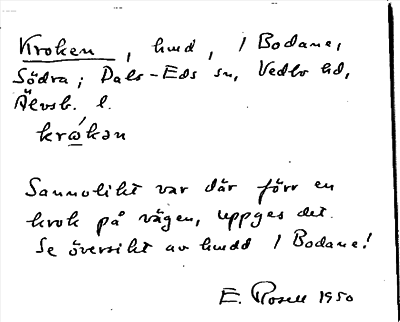 Kroken, hmd, / Bodane,
Södra; Dals-Eds sn, Vedbo hd,
Älvsb. l.
krώkən
Sannolikt var där förr en
krok på vägen, uppges det.
Se översikt av hmdd / Bodane!
E. Rosell 1950